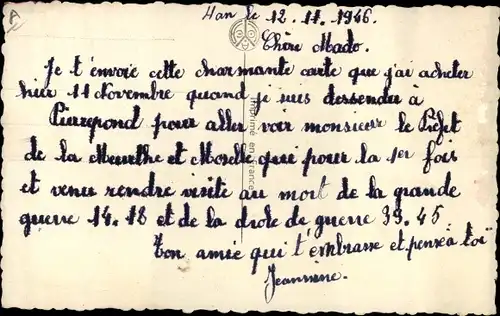 Han le 12.11.1946.
Chère Mado.
Je t'envoie cette charmante carte que j'ai acheter
hier 11 Novembre quand je suis dessendu à
Pierrepond pour aller voir monsieur le Préfet
de la Meurthe et Moselle qui pour la 1er fois
et venu rendre visite au mort de la grande
guerre 14.18 et de la drole de guerre 39.45
Ton amie qui t'embrasse et pense à toi
Jeannine.
Imprimé en France